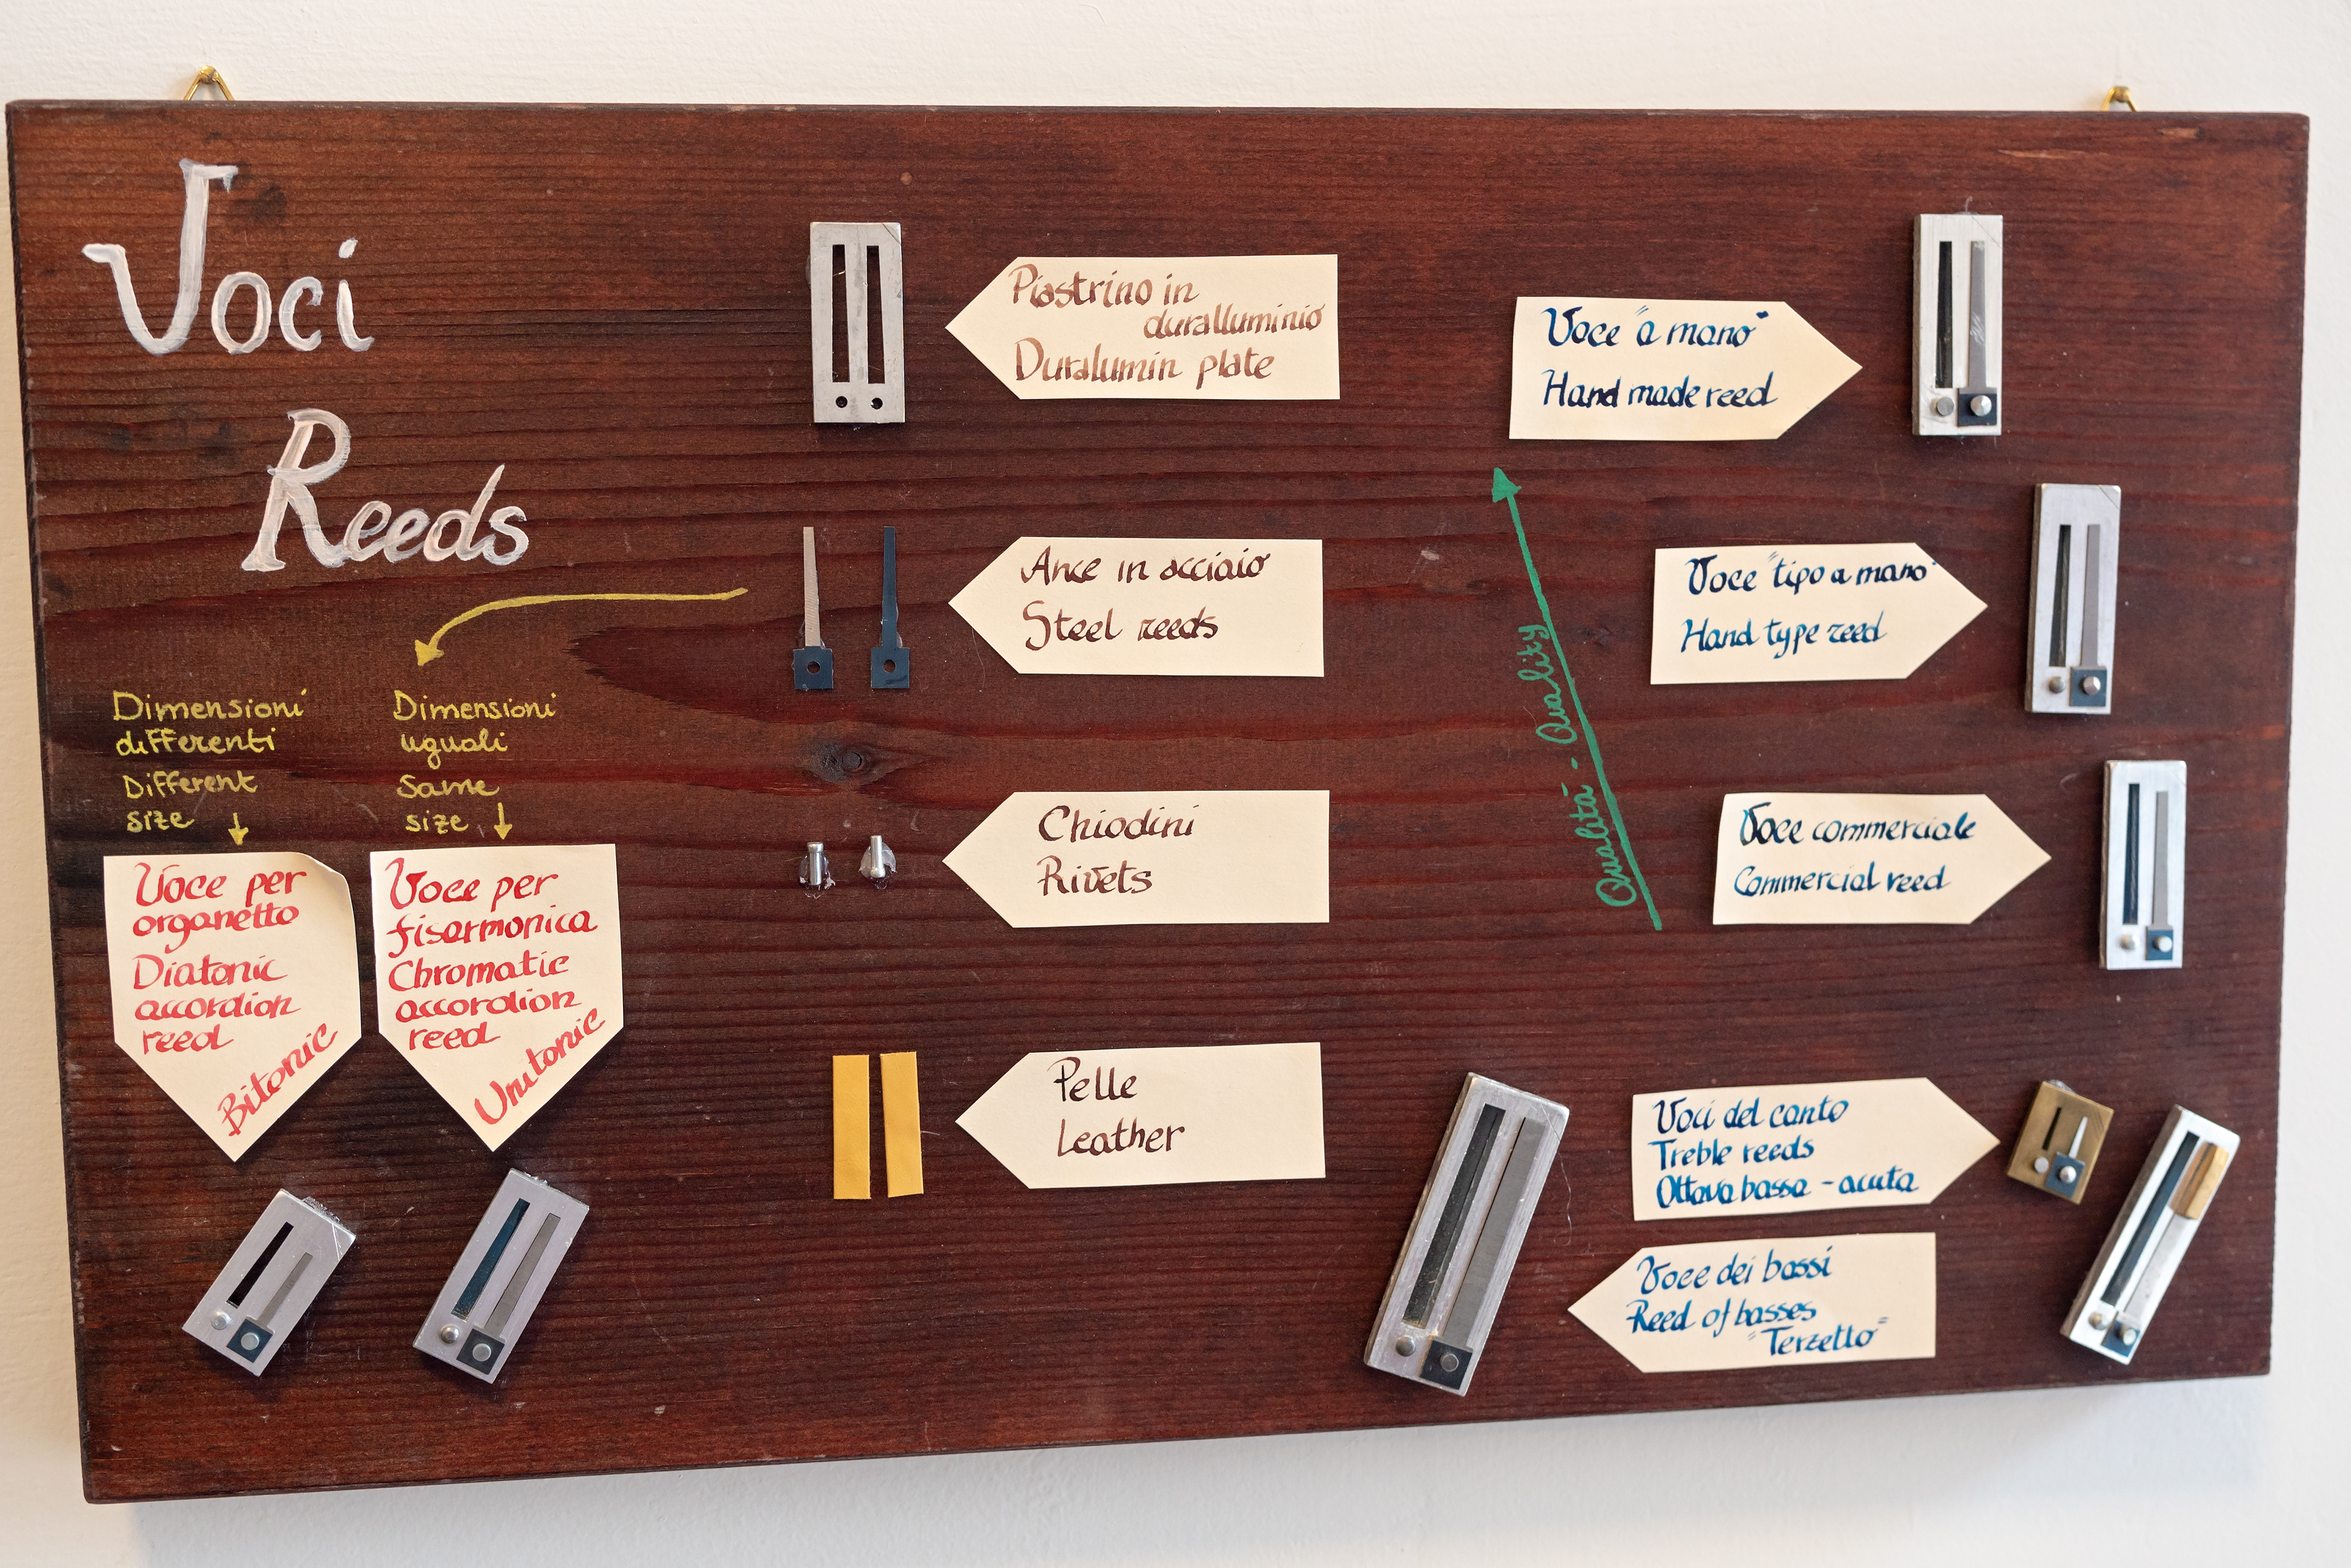 Voci
Reeds
Dimensioni
differenti
Different
size
Dimensioni
uguali
Same
size
Voce per
organetto
Diatonic
accordion
reed
Bitonic
Voce per
fisarmonica
Chromatic
accordion
reed
Unitonic
Piastrino in
duralluminio
Duralumin plate
Ance in acciaio
Steel reeds
Chiodini
Rivets
Pelle
Leather
Qualità - Quality
Voce "a mano"
Hand made reed
Voce "tipo a mano"
Hand type reed
Voce commerciale
Commercial reed
Voci del canto
Treble reeds
Ottava bassa - acuta
Voce dei bassi
Reed of basses
"Terzetto"